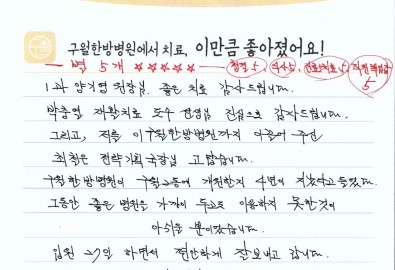 구월한방병원에서 치료, 이만큼 좋아졌어요!
별 5개 ☆☆☆☆☆ 청결 5, 식사 5, 진료치료 5, 직원 5
1과 양기영 원장님. 좋은 치료 감사드립니다.
박충열 재활치료 도수 선생님 진심으로 감사드립니다.
그리고, 저를 이 구월한방병원까지 이끌어 주신
최청은 전략기획국장님 고맙습니다.
구월한방병원이 구월2동에 개원한지 4년이 지났다고 들었다.
그동안 좋은 병원을 가까이 두고도 이용하지 못한것이
아쉬울 뿐이었습니다.
입원 27일 하면서 편안하게 잘보내고 갑니다.